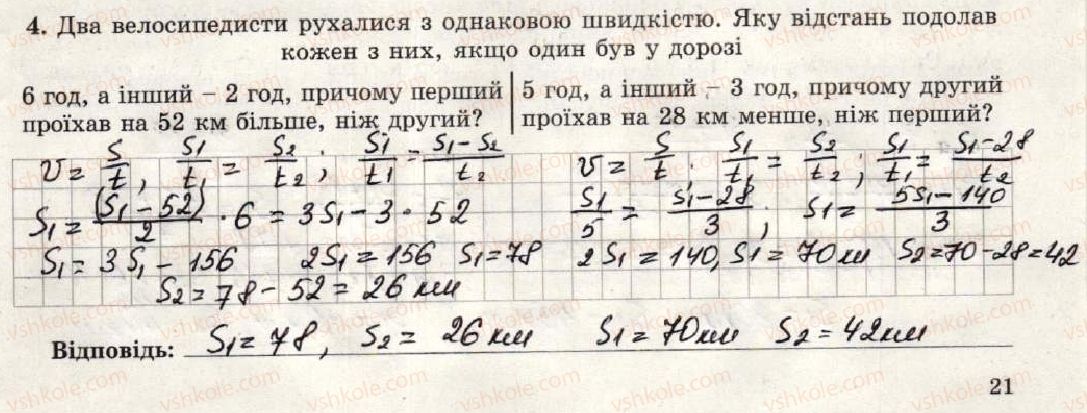 4. Два велосипедисти рухалися з однаковою швидкістю. Яку відстань подолав
кожен з них, якщо один був у дорозі
6 год, а інший – 2 год, причому перший
проїхав на 52 км більше, ніж другий?
V = S/t, S1/t1 = S2/t2; S1/t1 = (S1 – S2)/t2
S1 = (S1 – 52)/2 · 6 = 3S1 – 3 · 52
S1 = 3S1 – 156 2S1 = 156 S1 = 78
S2 = 78 – 52 = 26 км
5 год, а інший – 3 год, причому другий
проїхав на 28 км менше, ніж перший?
V = S/t. S1/t1 = S2/t2; S1/t1 = (S1 – 28)/t2
S1/5 = (S1 – 28)/3; S1 = (5S1 – 140)/3
2S1 = 140, S1 = 70 км S2 = 70 – 28 = 42
Відповідь: S1 = 78, S2 = 26 км S1 = 70 км S2 = 42 км
21
vshkole.com